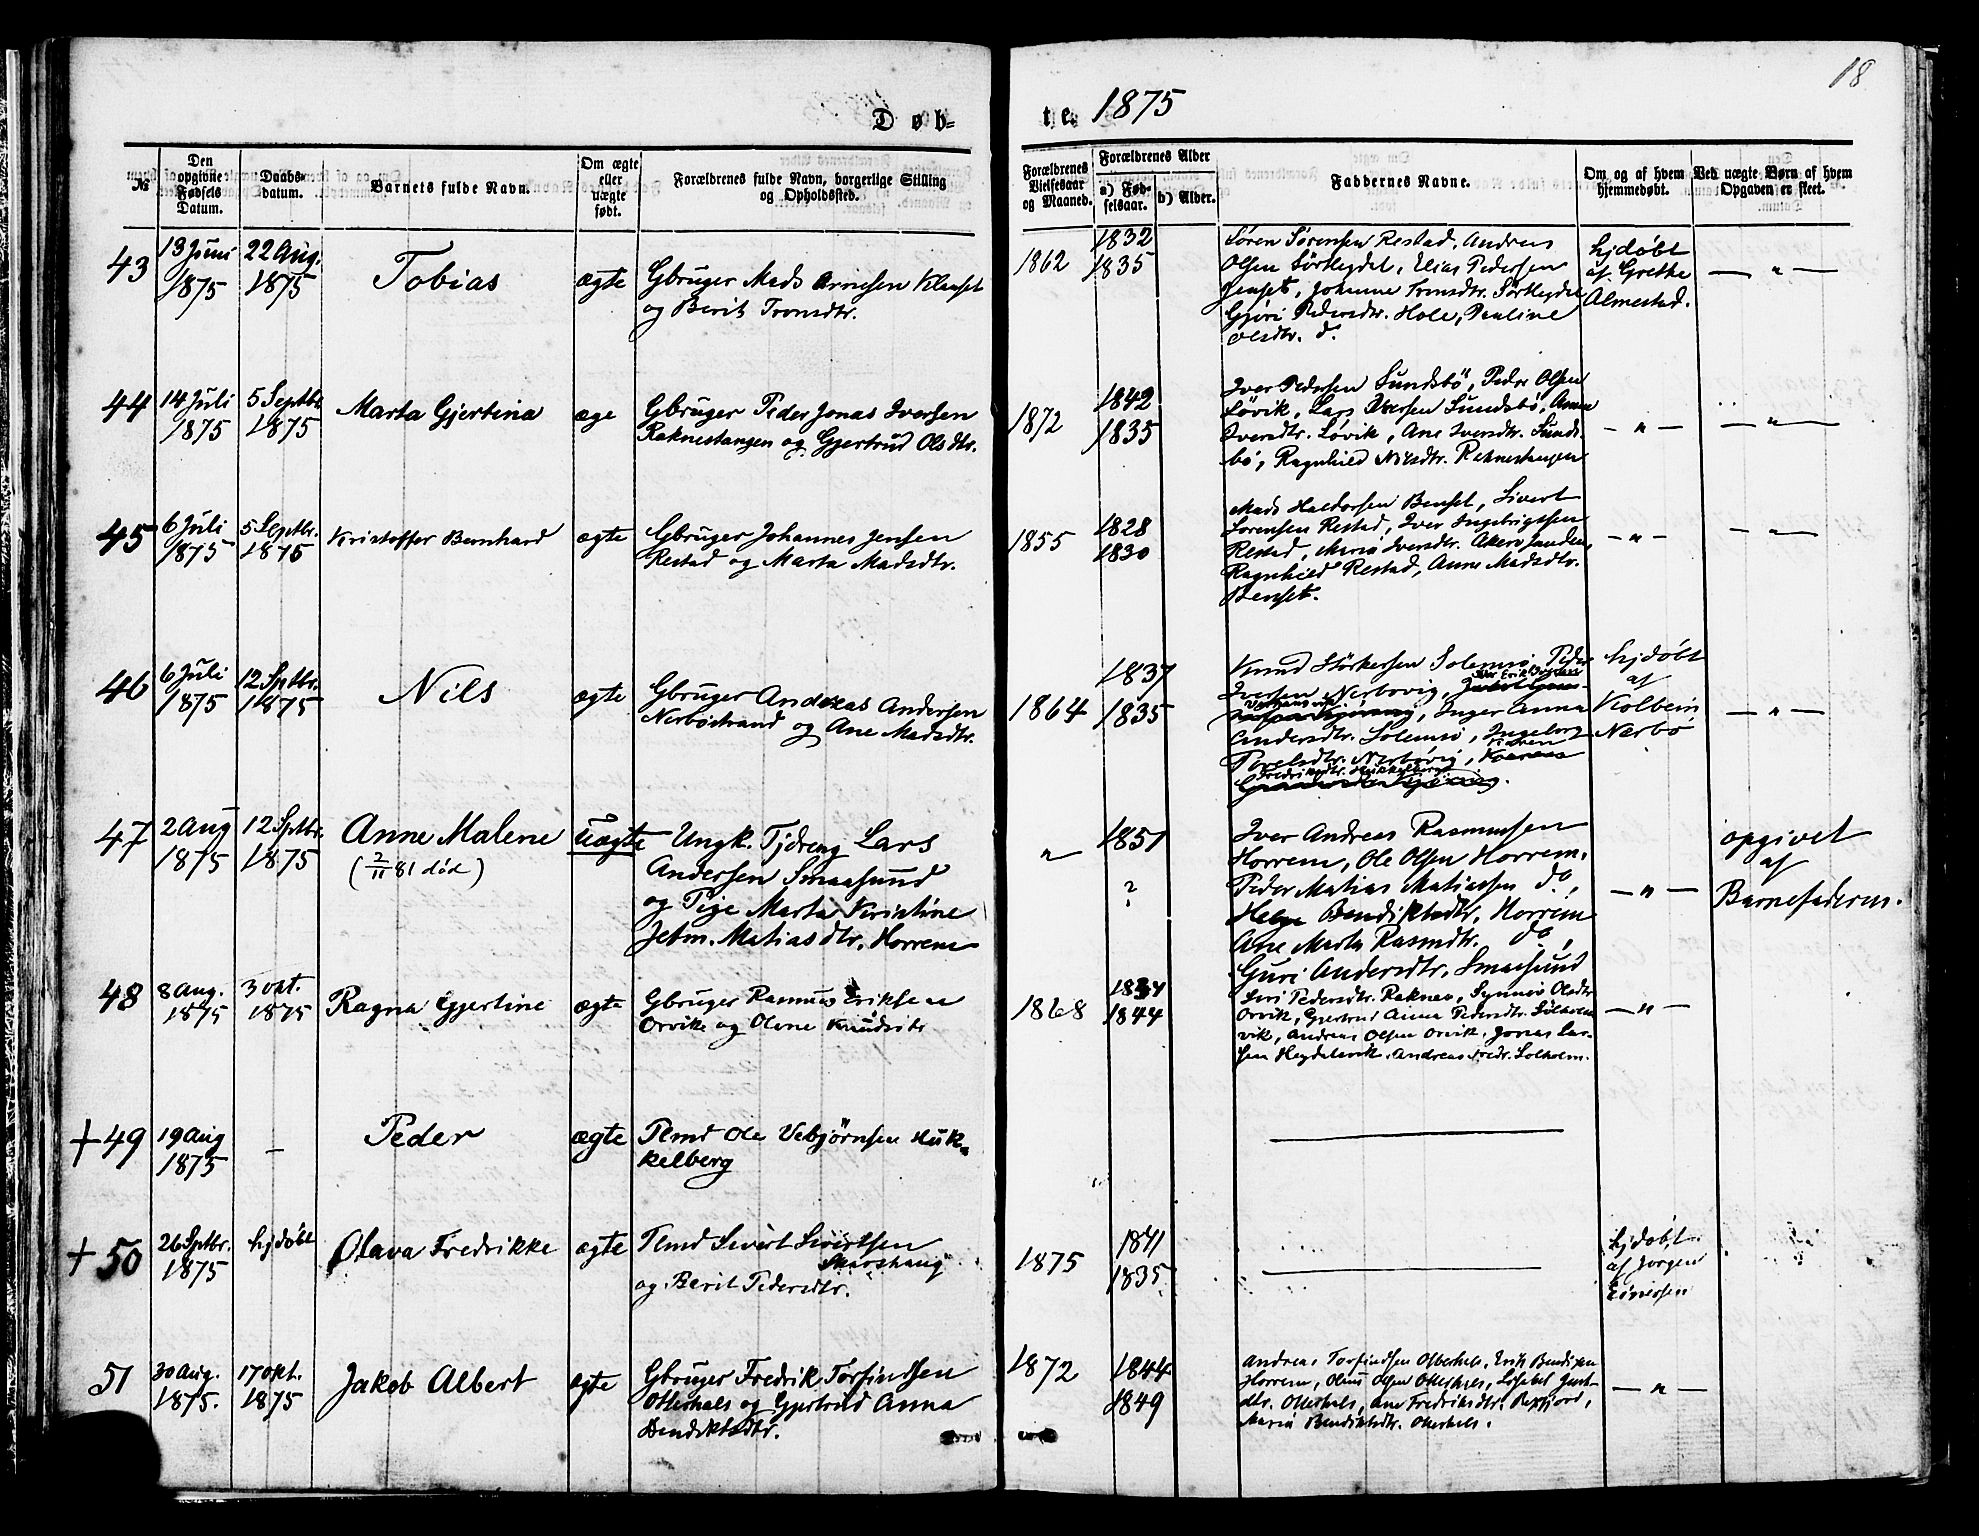 18
Døb-
te. 1875
№
Den opgivne Fødsels Datum.
Daabs-datum.
Barnets fulde Navn.
Om ægte eller uægte født.
Forældrenes fulde Navn, borgerlige Stilling og Opholdssted.
Forældrenes Vielsesaar og Maaned.
Forældrenes Alder
a) Fød-selsaar.
b) Alder.
Faddernes Navne.
Om og af hvem hjemmedøbt.
Ved uægte Børn af hvem Opgaven er skeet.
43
13 Juni
1875
22 Aug.
1875
Tobias
ægte
Gbruger Mads Arnesen Klauset
og Berit Tronsdtr.
1862
1832
1835
Søren Sørensen Restad, Andreas
Olsen Sørhejdal, Elias Pedersen
Jenset, Johanne Tronsdtr. Sørhejdal
Gjøri Pedersdtr. Hole, Pauline
Olsdtr. do.
hjdøbt
af Grethe
Almestad.
— " —
44
14 Juli
1875
5 Septbr.
1875
Marta Gjertina
æge
Gbruger Peder Jonas Iversen
Raknestangen og Gjertrud Olsdtr.
1872
1842
1835
Iver Pedersen Sundsbö, Peder Olsen
Løvik, Lars Iversen Sundsbø, Anna
Iversdtr. Løvik, Ane Iversdtr. Sunds-
bö, Ragnhild Nilsdtr. Raknestangen
— " —
— " —
45
6 Juli
1875
5 Septbr.
1875
Kristoffer Bernhard
ægte
Gbruger Johannes Jensen
Restad og Marta Madsdtr.
1855
1828
1830
Mads Haldorsen Benset, Sivert
Sørensen Restad, Iver Ingebrigtsen
Restad, Maria Iversdtr. Akersanden,
Ragnhild Restad, Anne Madsdtr.
Benset.
— " —
— " —
46
6 Juli
1875
12 Sptbr.
1875
Nils
ægte
Gbruger Andreas Andersen
Nerbøstrand og Ane Madsdtr.
1864
1837
1835
Knud Störkersen Solemsø, Peder
Iversen Nerbøvig,
, Inger Anna
Andersdtr. Solemsø, Ingeborg
Povelsdtr. Nerbøvig,
Fredriksdtr. Hukkelberg
hjdøbt
af
Kolbein
Nærbø
— " —
47
2 Aug
1875
12 Sptbr.
1875
Anne Malene
(2/11 81 død)
uægte
Ungk. Tjdreng Lars
Andersen Smaasund
og Pige Marta Kristine
Jetm. Matiasdtr. Horrem
"
1851
?
Iver Andreas Rasmussen
Horrem, Ole Olsen Horrem,
Peder Matias Matiassen do,
Helga Bendiktsdtr. Horrem
Ane Marta Rasmdtr. do,
Guri Andersdtr. Smaasund
— " —
opgivet
af
Barnefaderen.
48
8 Aug.
1875
3 Okt.
1875
Ragna Gjertine
ægte
Gbruger Rasmus Eriksen
Orvik og Olene Knudsdtr
1868
1834
1844
Siri Pedersdtr. Raknes, Synnøv Olsdtr
Orvik, Gjertrud Anna Pedersdtr. Solholm
vik, Andreas Olsen Orvik, Jonas Lar-
sen Hejdalsvik, Andreas Fredr. Solholm.
— " —
+ 49
19 Aug
1875
—
Peder
ægte
Plmd Ole Vebjørnsen Huk-
kelberg
+ 50
26 Sptbr.
1875
hjdøbt
Olava Fredrikke
ægte
Plmd Sivert Sivertsen
Skarshaug
og Berit Pedersdtr.
1875
1841
1835
hjdøbt
af Jørgen
Einersen
51
30 Aug.
1875.
17 Okt.
1875
Jakob Albert
ægte
Gbruger Fredrik Torfindsen
Otterhals og Gjertrud Anna
Bendiktsdtr.
1872
1844
1849
Andreas Torfindsen Otterhals, Erik Bendixen
Horrem, Olaus Olsen Otterhals, Lisebet Just-
dtr. Otterhals, Ane Fredriksdtr. Rexfjord,
Maria Bendiktsdtr. Otterhals.
— " —